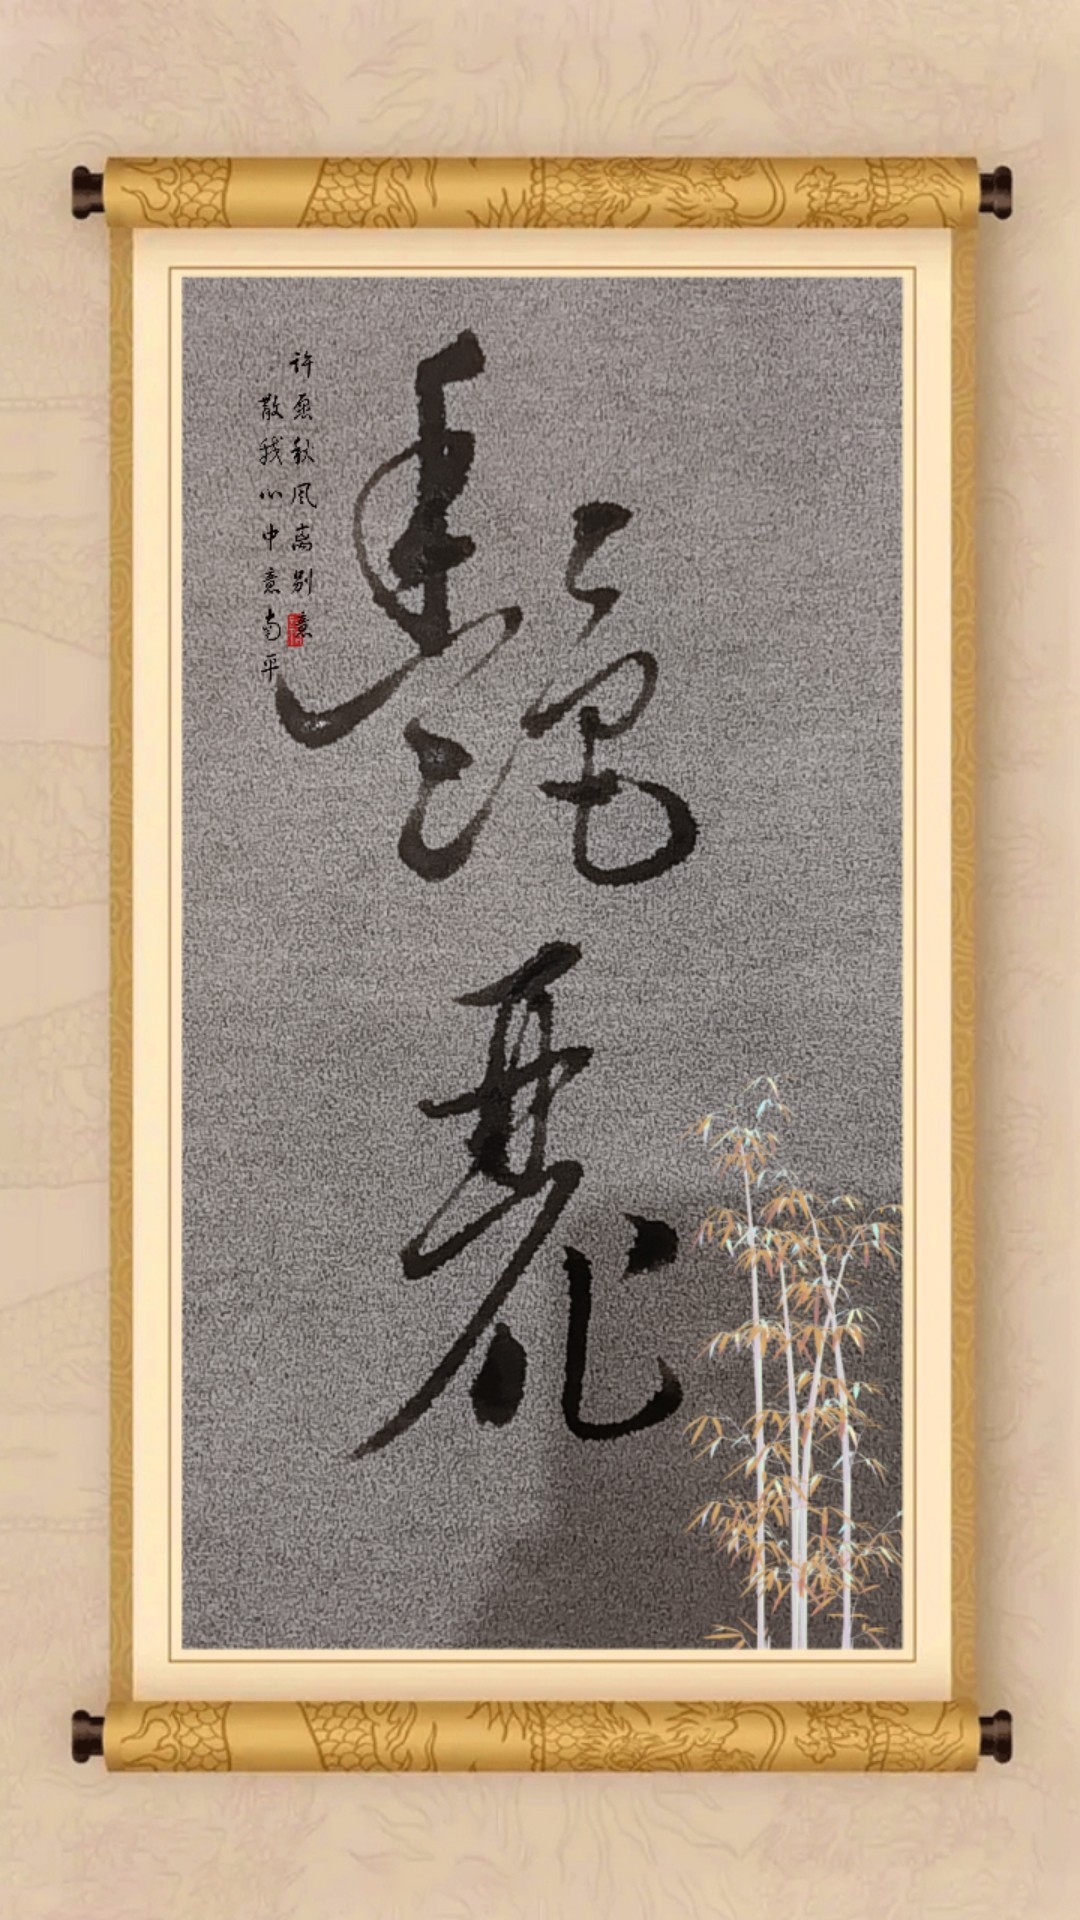 艷麗
许愿秋风离别意
散我心中意南平